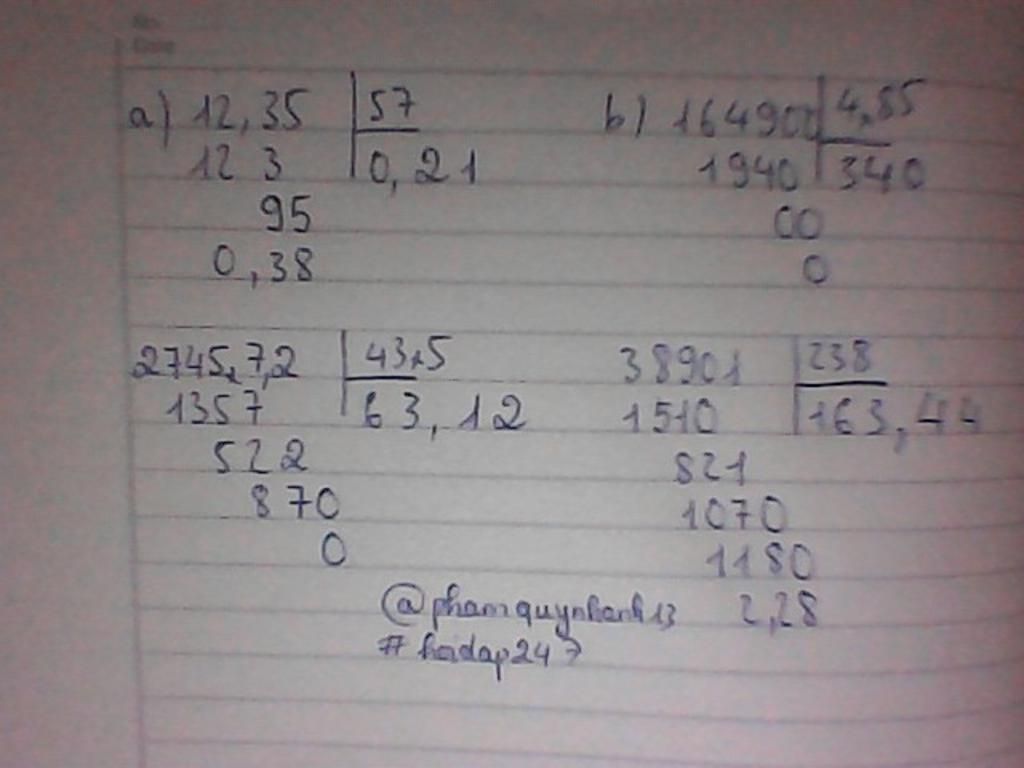 No.
Date
a) 12,35 | 57
12 3 | 0,21
95
0,38
b) 164900 | 4,85
1940 | 340
00
0
2745,7,2 | 43,5
1357 | 63,12
522
870
0
38901 | 238
1510 | 163,44
821
1070
1180
2,28
@phamquynhanh13
#hoidap247